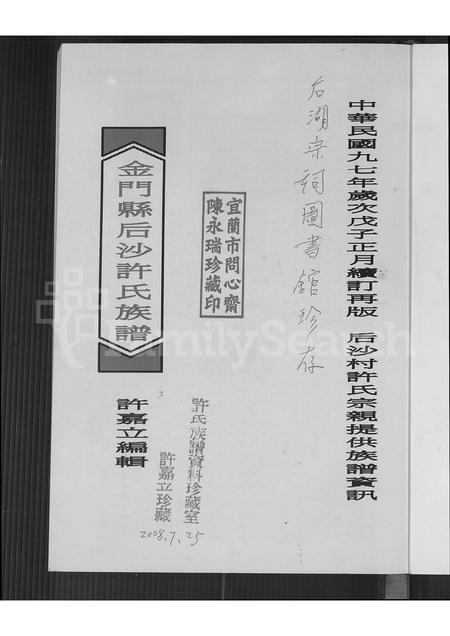 中華民國九七年歲次戊子正月續訂再版　后沙村許氏宗親提供族譜資訊
后湖宗祠圖書館珍存
宜蘭市問心齋
陳永瑞珍藏印
金門縣后沙許氏族譜
許嘉立編輯
許氏族譜資料珍藏室
許嘉立珍藏
2008.7.25
FamilySearch